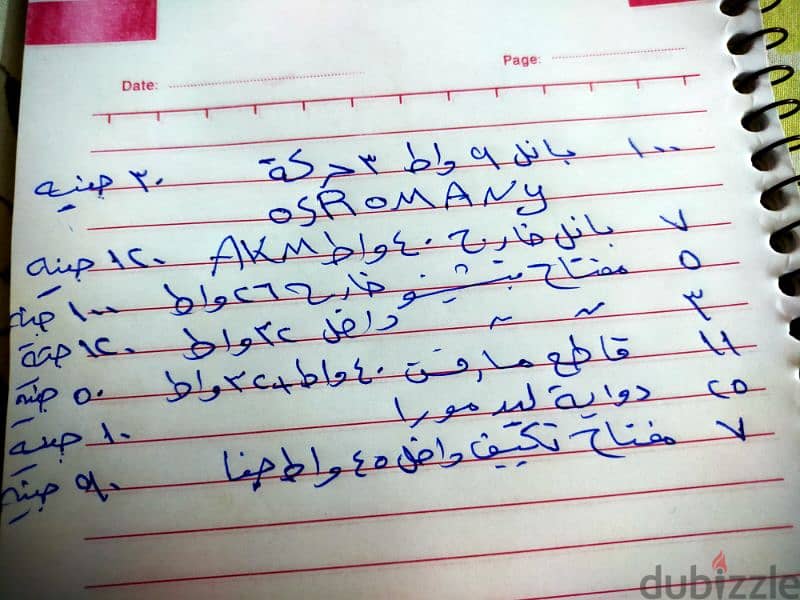 Page:
Date:
١٠٠ بانل ٩ واط ٣ حركة ٣٠ جنيه
OSROMANY
٧ بانل خارج ٤٠ واط AKM ١٢٠ جنيه
٥ مفتاح خارج ٢٦ واط ١٠٠ جنية
٣ " " داخل ٣٢ واط ١٢٠ جنية
١١ قاطع مارفت ٤٠ واط + ٣٢ واط ٥٠ جنيه
٢٥ دواية ليد مورا ١٠ جنيه
٧ مفتاح تكييف داخل ٤٥ واط چنا ٩٠ جنيه
dubizzle